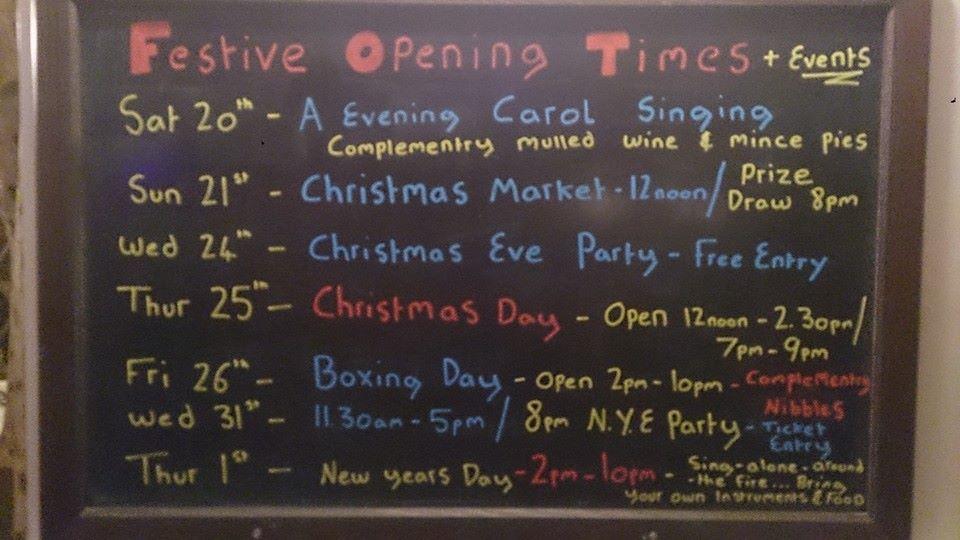 Festive Opening Times + Events
Sat 20th - A Evening Carol Singing
Complementry mulled wine & mince pies
Sun 21st - Christmas Market - 12noon / Prize Draw 8pm
Wed 24th - Christmas Eve Party - Free Entry
Thur 25th - Christmas Day - Open 12noon - 2.30pm /
7pm - 9pm
Fri 26th - Boxing Day - open 2pm - 10pm - Complementry Nibbles
Wed 31st - 11.30am - 5pm / 8pm N.Y.E Party - Ticket Entry
Thur 1st - New years Day - 2pm - 10pm - Sing-alone-around
-the fire... Bring
your own Instruments & Food